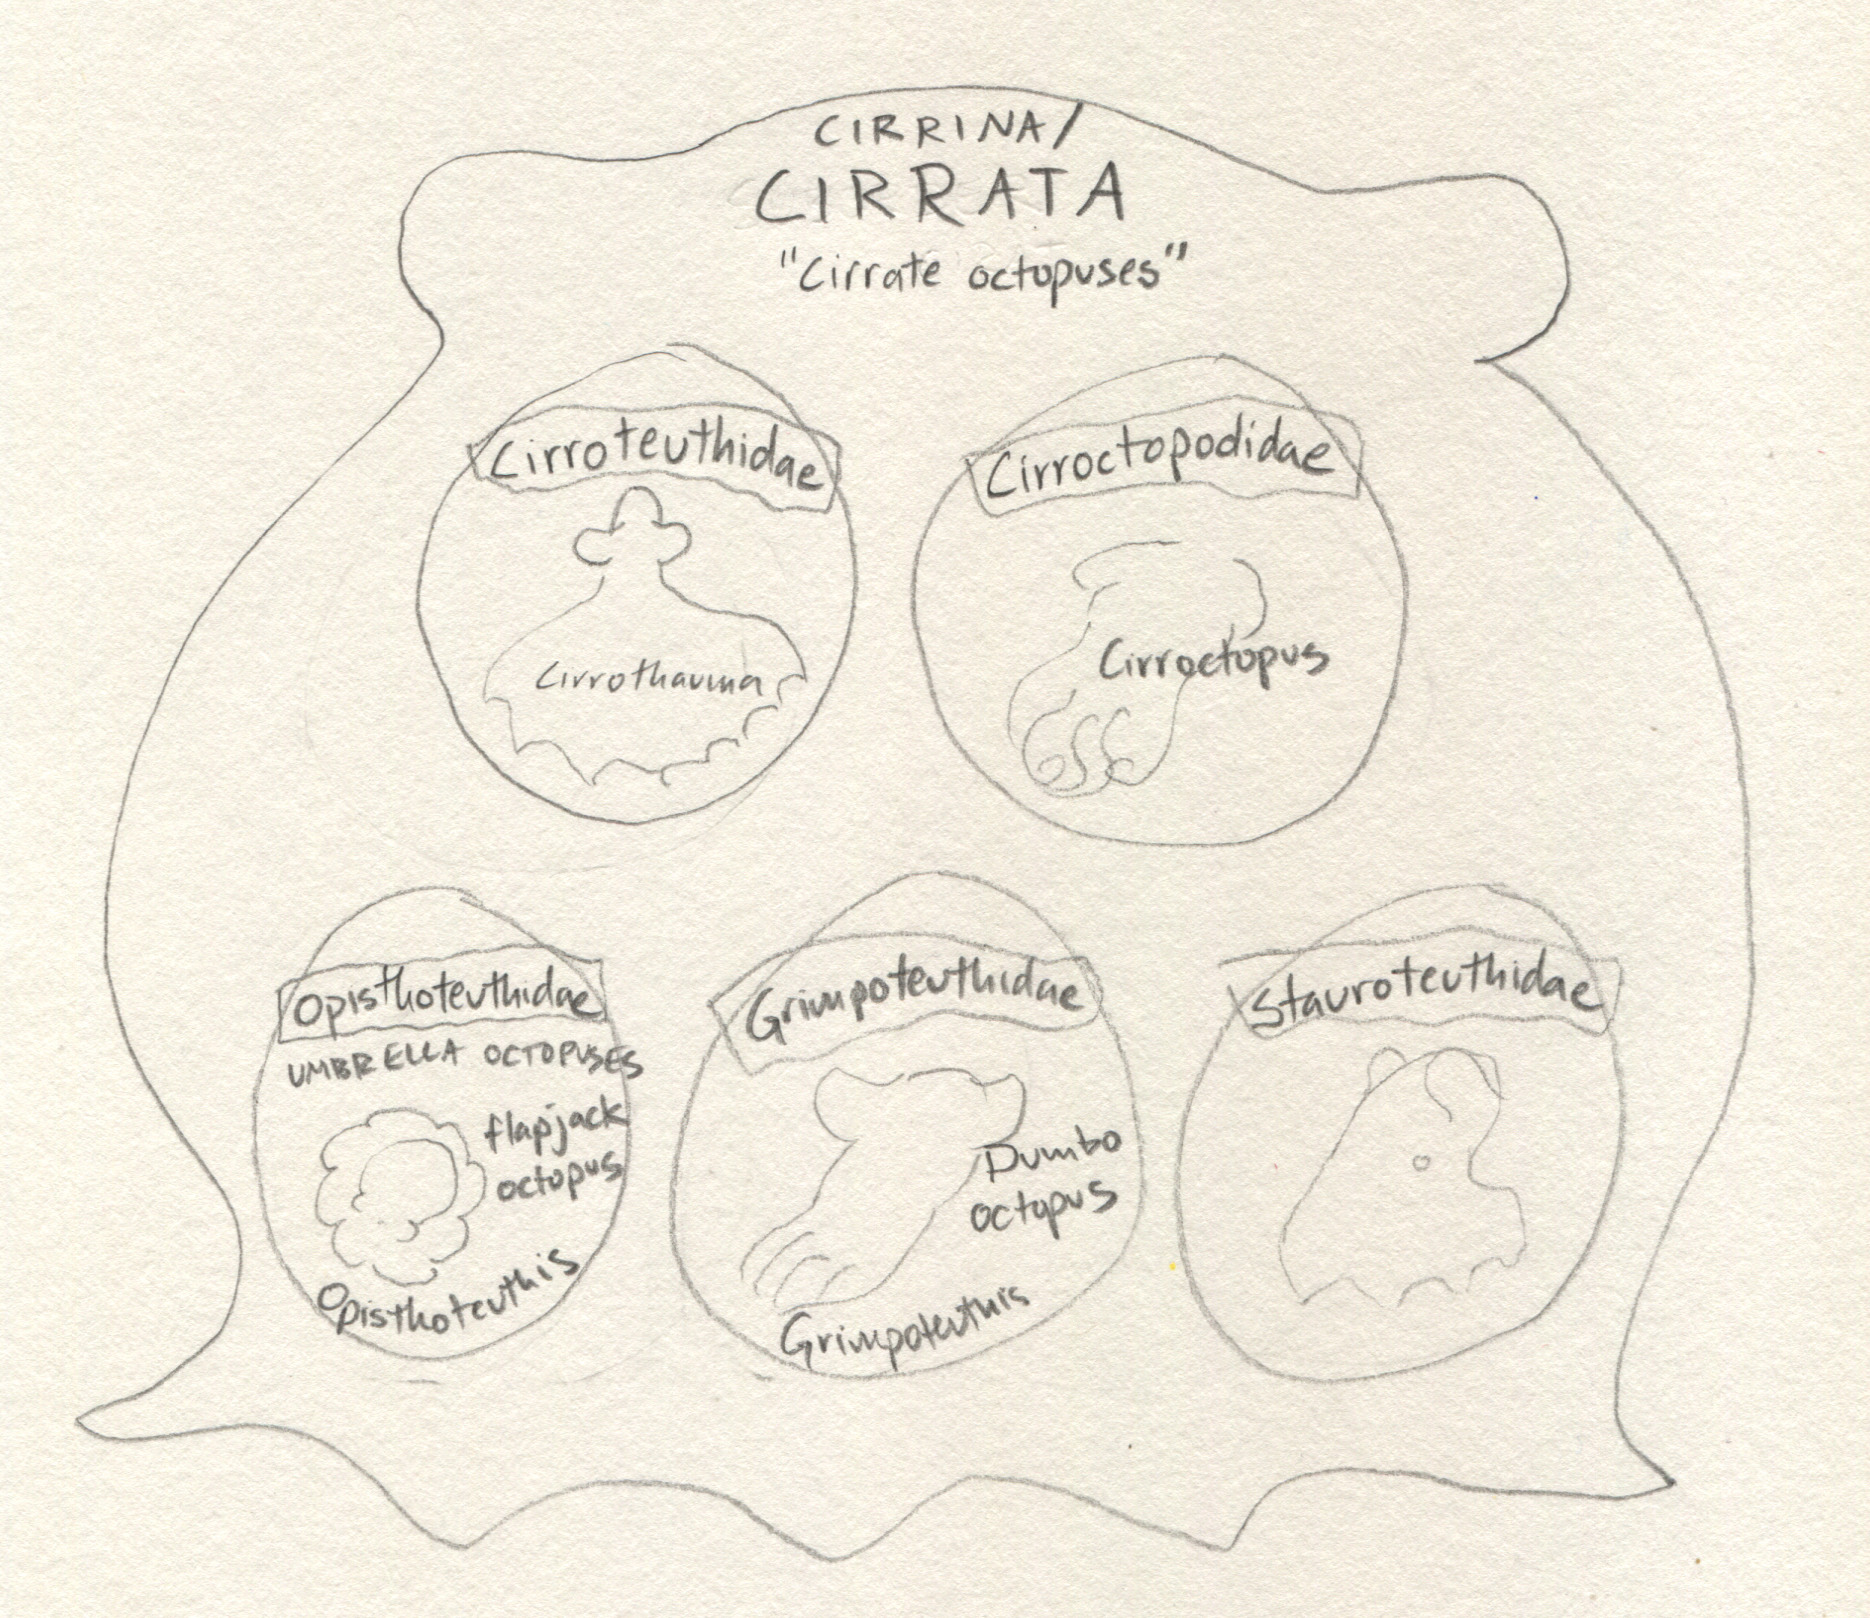 CIRRINA/
CIRRATA
"Cirrate octopuses"
Cirroteuthidae
Cirrothauma
Cirroctopodidae
Cirroctopus
Opisthoteuthidae
UMBRELLA OCTOPUSES
flapjack
octopus
Opisthoteuthis
Grimpoteuthidae
Dumbo
octopus
Grimpoteuthis
Stauroteuthidae